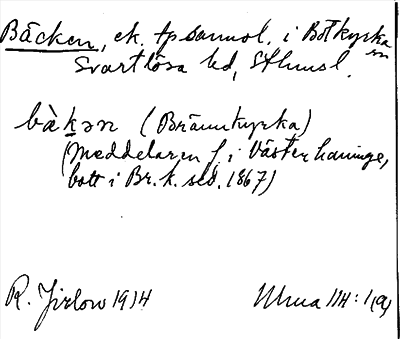 Bäcken, ek. tpsamml. i Botkyrka sn
Svartlösa hd, Sthmsl.
bàkən (Brännkyrka)
(Meddelaren f. i Västerhaninge,
bott i Br.k. sed. 1867)
R. Jirlow 1914